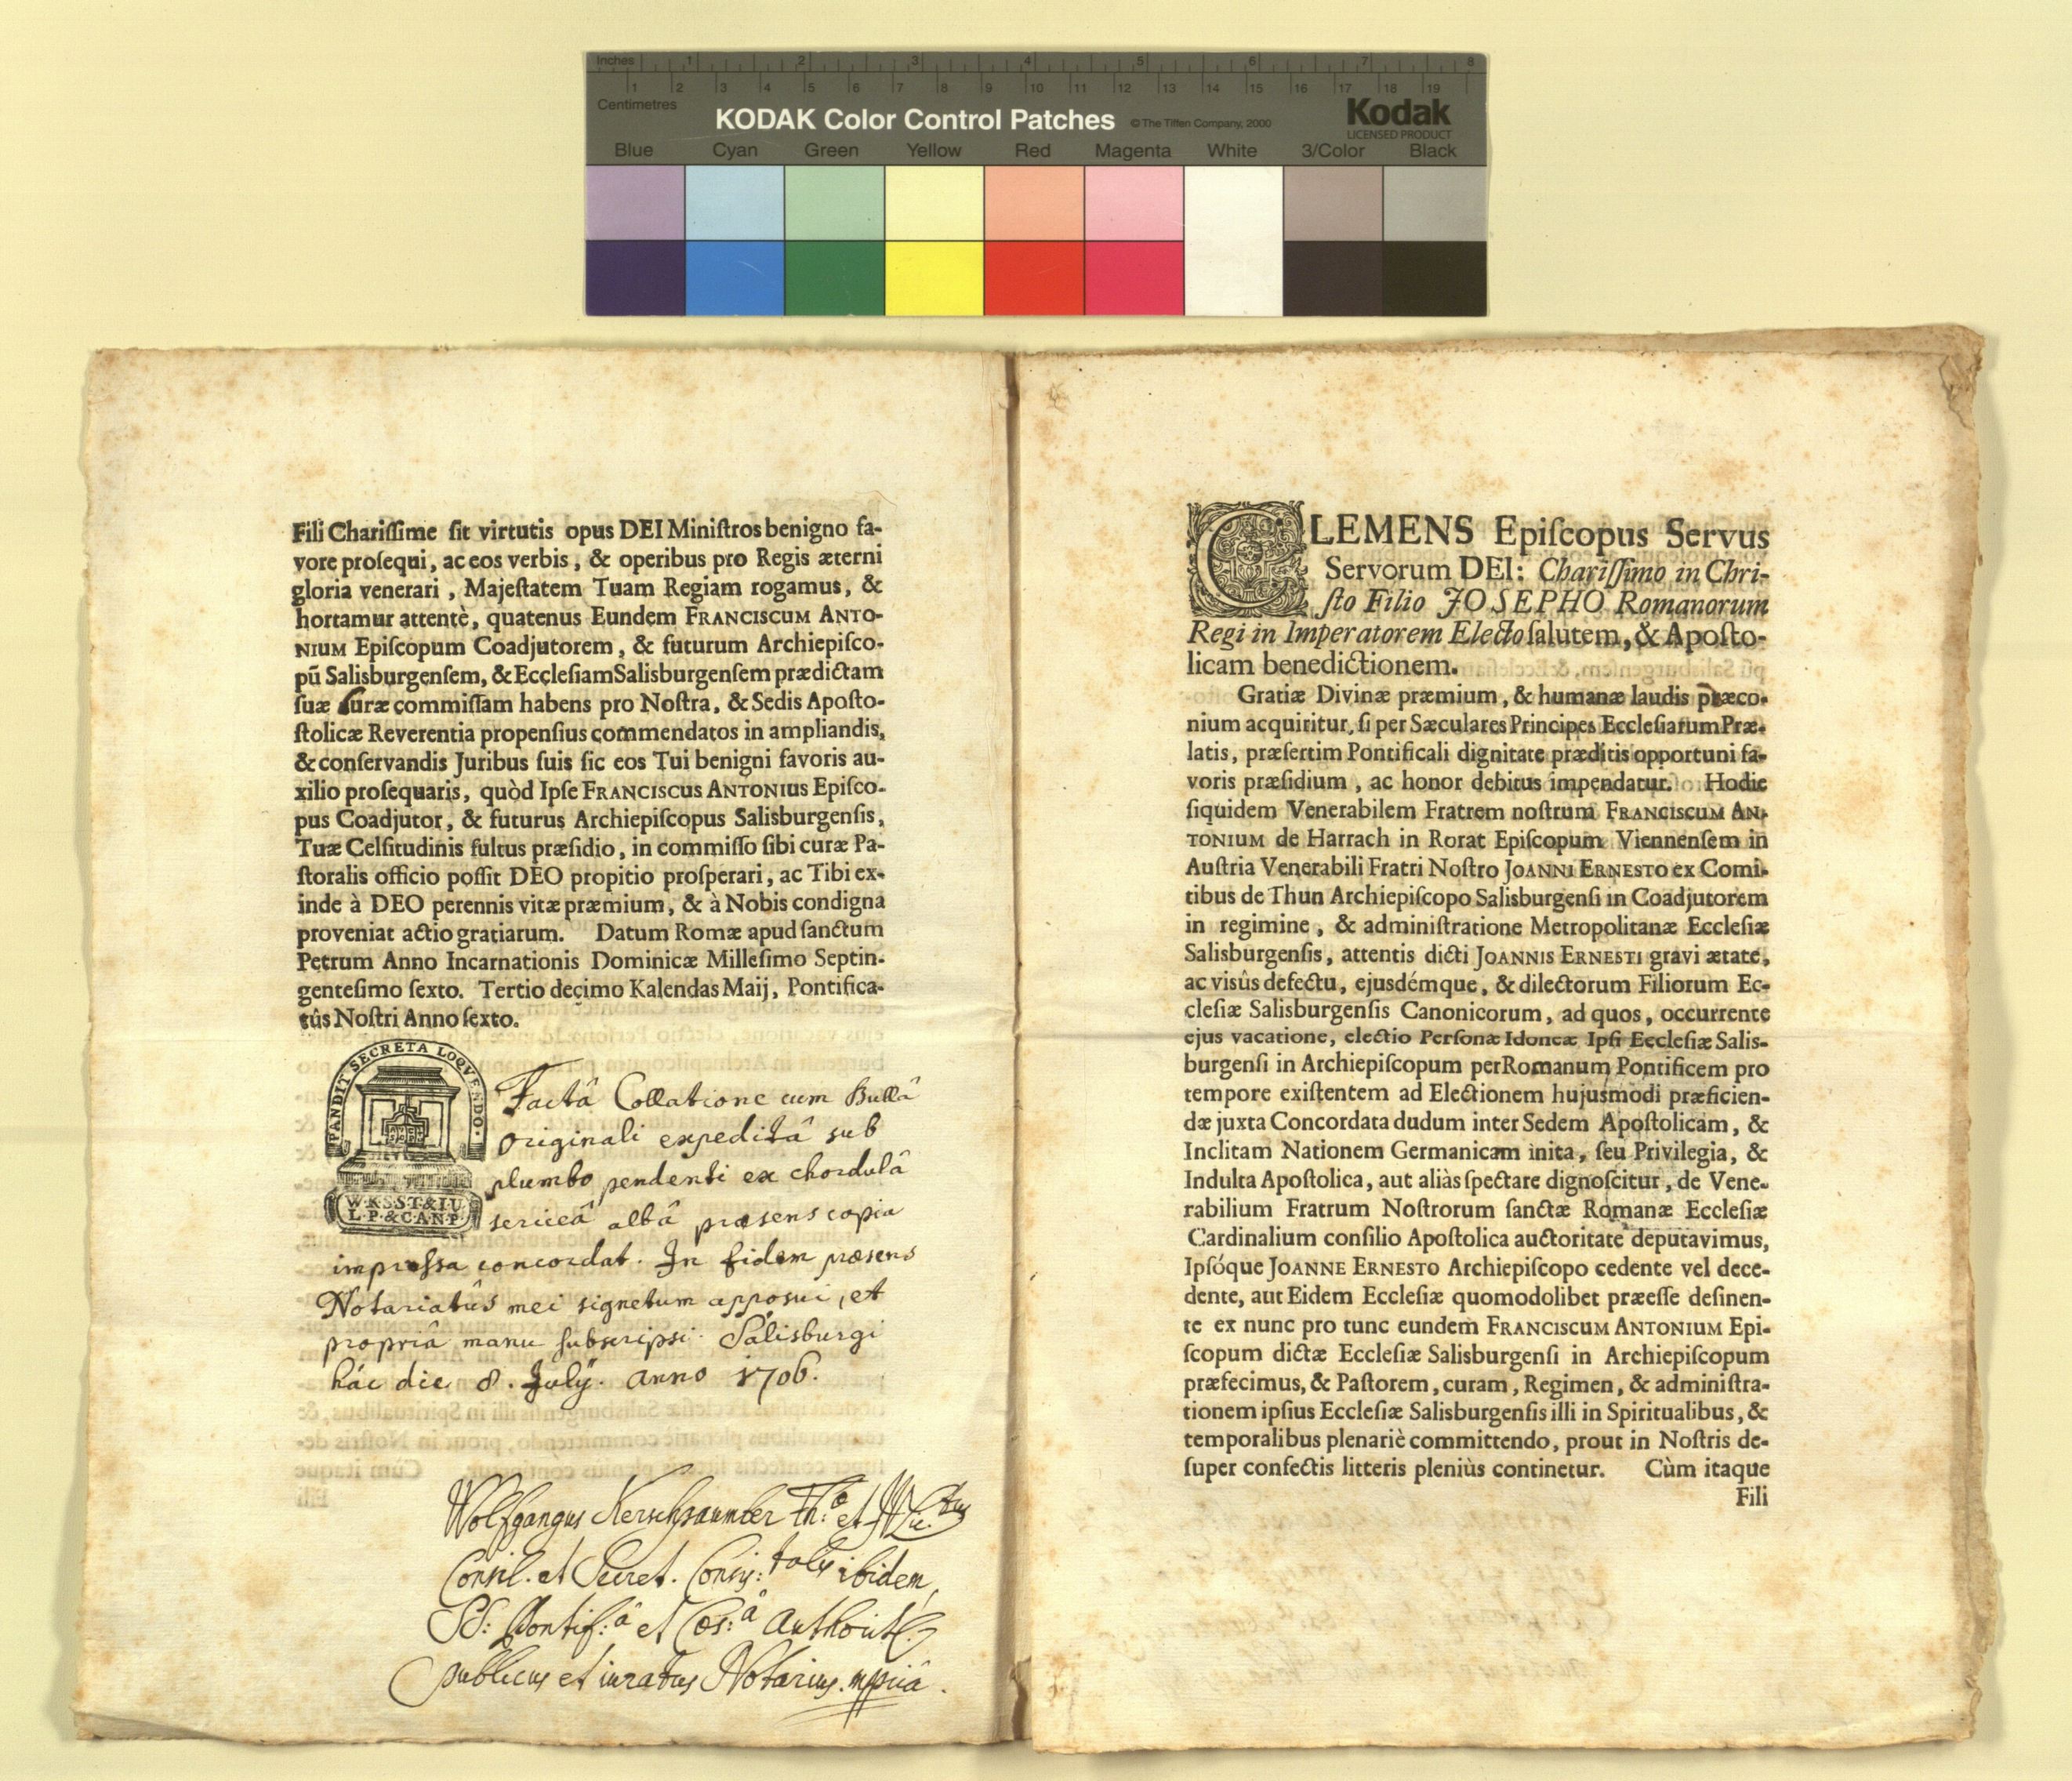 Inches 1 2 3 4 5 6 7 8
1 2 3 4 5 6 7 8 9 10 11 12 13 14 15 16 17 18 19
Centimetres
KODAK Color Control Patches © The Tiffen Company, 2000 Kodak
LICENSED PRODUCT
Blue Cyan Green Yellow Red Magenta White 3/Color Black
Fili Chariſſime ſit virtutis opus DEI Miniſtros benigno fa-
vore proſequi, ac eos verbis, & operibus pro Regis æterni
gloria venerari, Majeſtatem Tuam Regiam rogamus, &
hortamur attentè, quatenus Eundem FRANCISCUM ANTO-
NIUM Epiſcopum Coadjutorem, & futurum Archiepiſco-
pũ Salisburgenſem, & Eccleſiam Salisburgenſem prædictam
ſuæ curæ commiſſam habens pro Noſtra, & Sedis Apoſto-
ſtolicæ Reverentia propenſius commendatos in ampliandis,
& conſervandis Juribus ſuis ſic eos Tui benigni favoris au-
xilio proſequaris, quòd Ipſe FRANCISCUS ANTONIUS Epiſco-
pus Coadjutor, & futurus Archiepiſcopus Salisburgenſis,
Tuæ Celſitudinis fultus præſidio, in commiſſo ſibi curæ Pa-
ſtoralis officio poſſit DEO propitio proſperari, ac Tibi ex-
inde à DEO perennis vitæ præmium, & à Nobis condigna
proveniat actio gratiarum. Datum Romæ apud ſanctum
Petrum Anno Incarnationis Dominicæ Milleſimo Septin-
genteſimo ſexto. Tertio decimo Kalendas Maij, Pontifica-
tûs Noſtri Anno ſexto.
PANDIT SECRETA LOQVENDO.
W.K.S.S.T.&I.U.
L.P.&C.A.N.P.
Factâ Collatione cum Bullâ
originali expeditâ sub
plumbo pendenti ex chordulâ
sericeâ albâ præsens copia
impreſsa concordat. In fidem præsens
Notariatûs mei signetum apposui, et
propriâ manu ſubscripsi. Salisburgi
hác die 8. Julÿ. anno 1706.
Wolfgangus Kerschpaumber Th: et Lic.
Consil. et Secret. Consis: ibidem,
Pontif:â et Cæs:â
publicus et iuratus Notarius. mpriâ.
CLEMENS Epiſcopus Servus
Servorum DEI: Chariſſimo in Chri-
ſto Filio JOSEPHO Romanorum
Regi in Imperatorem Electo ſalutem, & Apoſto-
licam benedictionem.
Gratiæ Divinæ præmium, & humanæ laudis præco-
nium acquiritur, ſi per Sæculares Principes Eccleſiarum Præ-
latis, præſertim Pontificali dignitate præditis opportuni fa-
voris præſidium, ac honor debitus impendatur. Hodie
ſiquidem Venerabilem Fratrem noſtrum FRANCISCUM AN-
TONIUM de Harrach in Rorat Epiſcopum Viennenſem in
Auſtria Venerabili Fratri Noſtro JOANNI ERNESTO ex Comi-
tibus de Thun Archiepiſcopo Salisburgenſi in Coadjutorem
in regimine, & adminiſtratione Metropolitanæ Eccleſiæ
Salisburgenſis, attentis dicti JOANNIS ERNESTI gravi ætate,
ac visûs defectu, ejusdémque, & dilectorum Filiorum Ec-
cleſiæ Salisburgenſis Canonicorum, ad quos, occurrente
ejus vacatione, electio Perſonæ Idoneæ Ipſi Eccleſiæ Salis-
burgenſi in Archiepiſcopum per Romanum Pontificem pro
tempore exiſtentem ad Electionem hujusmodi præficien-
dæ juxta Concordata dudum inter Sedem Apoſtolicam, &
Inclitam Nationem Germanicam inita, ſeu Privilegia, &
Indulta Apoſtolica, aut aliàs ſpectare dignoſcitur, de Vene-
rabilium Fratrum Noſtrorum ſanctæ Romanæ Eccleſiæ
Cardinalium conſilio Apoſtolica auctoritate deputavimus,
Ipſóque JOANNE ERNESTO Archiepiſcopo cedente vel dece-
dente, aut Eidem Eccleſiæ quomodolibet præeſſe deſinen-
te ex nunc pro tunc eundem FRANCISCUM ANTONIUM Epi-
ſcopum dictæ Eccleſiæ Salisburgenſi in Archiepiſcopum
præfecimus, & Paſtorem, curam, Regimen, & adminiſtra-
tionem ipſius Eccleſiæ Salisburgenſis illi in Spiritualibus, &
temporalibus plenariè committendo, prout in Noſtris de-
ſuper confectis litteris pleniùs continetur. Cùm itaque
Fili